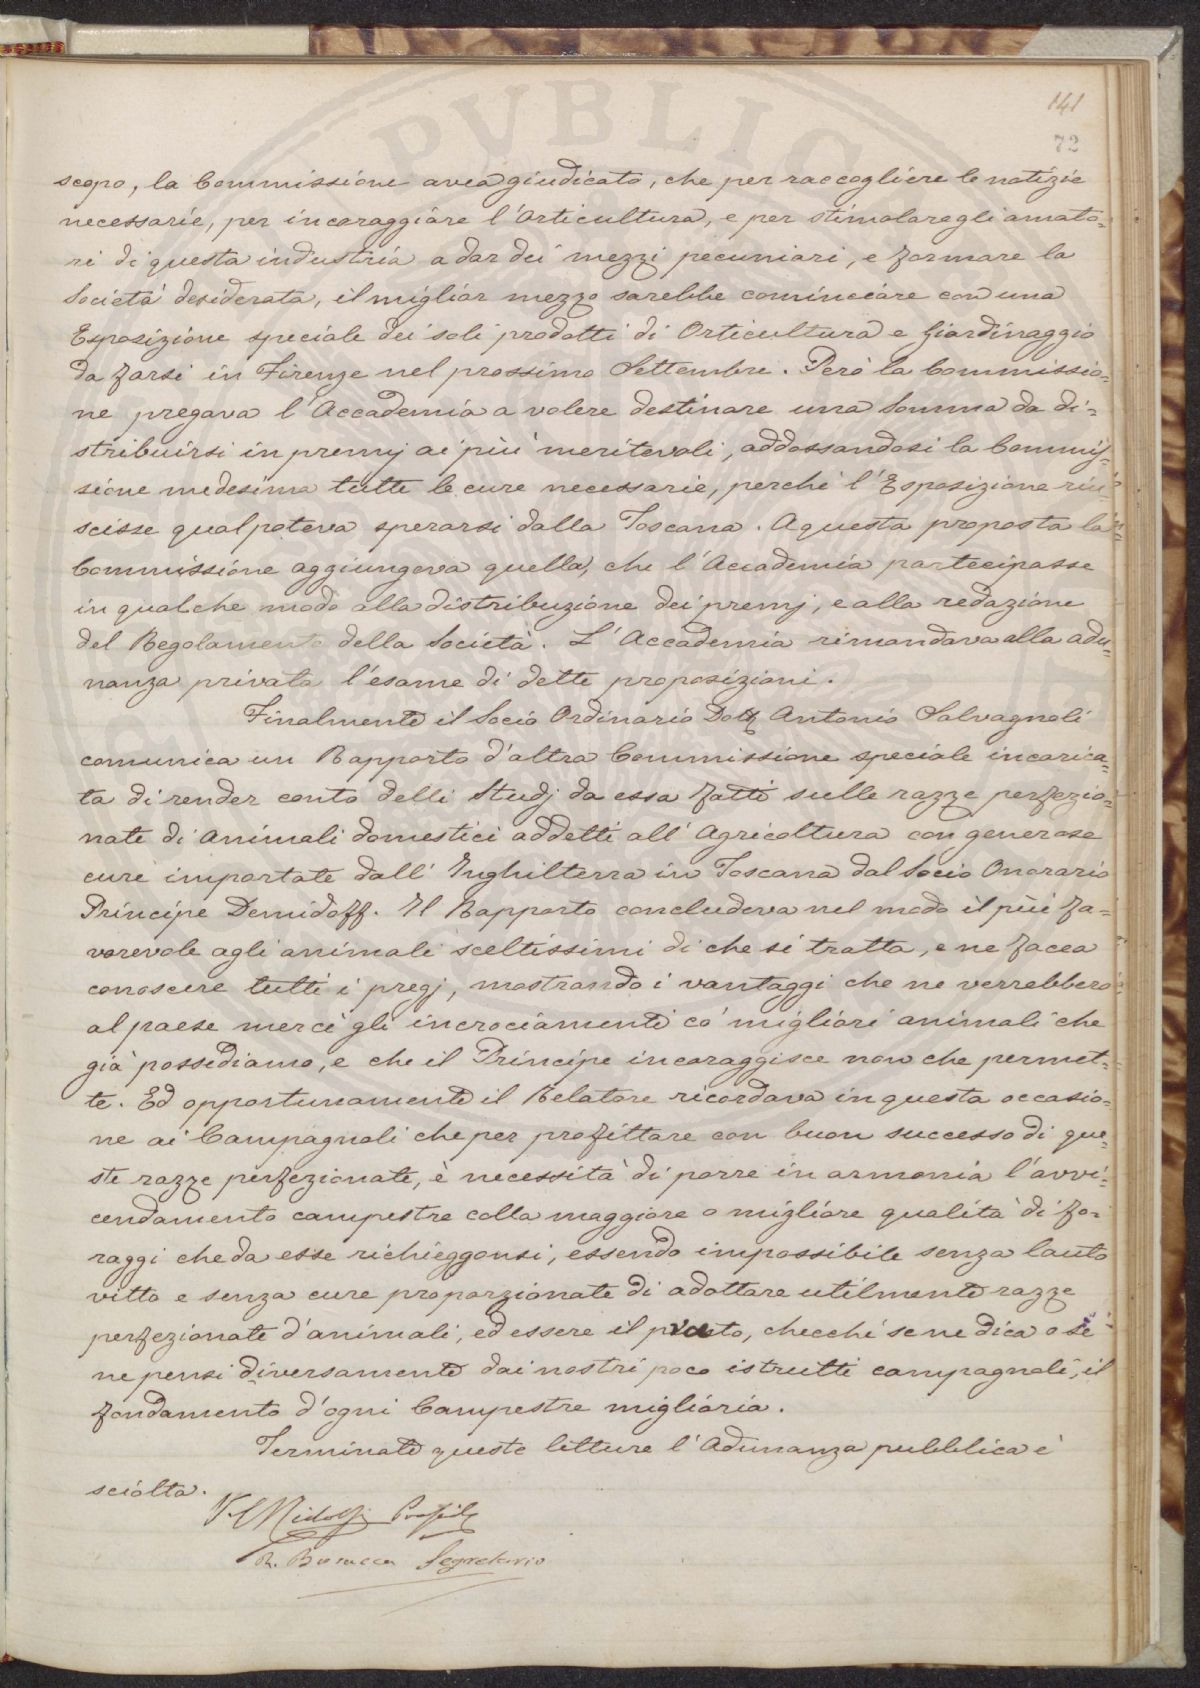 PVBLIC
141
72
scopo, la Commissione avea giudicato, che per raccogliere le notizie
necessarie, per incoraggiare l'Orticultura, e per stimolare gli amato=
ri di questa industria a dar dei mezzi pecuniari, e formare la
Società desiderata, il miglior mezzo sarebbe cominciare con una
Esposizione speciale dei soli prodotti di Orticultura e Giardinaggio
da farsi in Firenze nel prossimo Settembre. Però la Commissio=
ne pregava l'Accademia a volere destinare una Somma da di=
stribuirsi in premj ai più meritevoli, addossandosi la Commis=
sione medesima tutte le cure necessarie, perchè l'Esposizione riu
scisse qual poteva sperarsi dalla Toscana. A questa proposta la
Commissione aggiungeva quella, che l'Accademia partecipasse
in qualche modo alla distribuzione dei premj, e alla redazione
del Regolamento della Società. L'Accademia rimandava alla adu=
nanza privata l'esame di dette proposizioni.
Finalmente il Socio Ordinario Dott. Antonio Salvagnoli
comunica un Rapporto d'altra Commissione speciale incarica=
ta di render conto delli Studj da essa fatti sulle razze perfezio=
nate di Animali domestici addetti all'Agricoltura con generose
cure importate dall'Inghilterra in Toscana dal Socio Onorario
Principe Demidoff. Il Rapporto concludeva nel modo il più fa=
vorevole agli animali sceltissimi di che si tratta, e ne facea
conoscere tutti i pregj, mostrando i vantaggi che ne verrebbero
al paese mercè gli incrociamenti co' migliori animali che
già possediamo, e che il Principe incoraggisce non che permet=
te. Ed opportunamente il Relatore ricordava in questa occasio=
ne ai Campagnoli che per profittare con buon successo di que=
ste razze perfezionate, è necessità di porre in armonia l'avvi=
cendamento campestre colla maggiore o migliore qualità di fo=
raggi che da esse richieggonsi, essendo impossibile senza lauto
vitto e senza cure proporzionate di adottare utilmente razze
perfezionate d'animali, ed essere il prato, checchè se ne dica o se
ne pensi diversamente dai nostri poco istrutti campagnoli, il
fondamento d'ogni Campestre miglioria.
Terminate queste letture l'Adunanza pubblica è
sciolta.
Ridolfi
R. Busacca Segretario